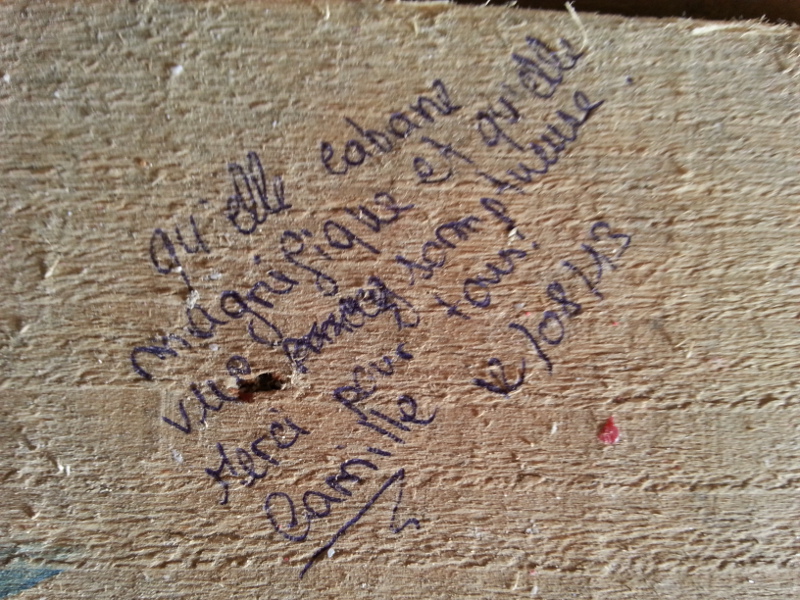 qu'elle cabane
magnifique et qu'elle
vue somptueuse.
Merci pour tous!
Camille /08/13